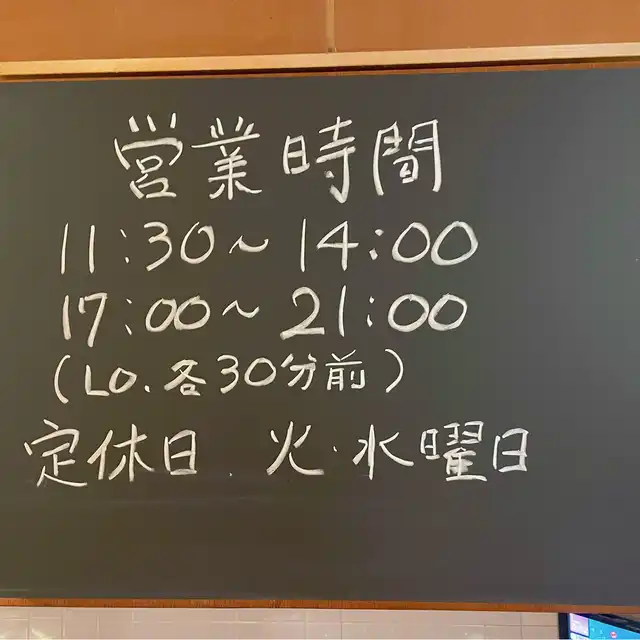 営業時間
11:30〜14:00
17:00〜21:00
(LO.各30分前)
定休日.火・水曜日